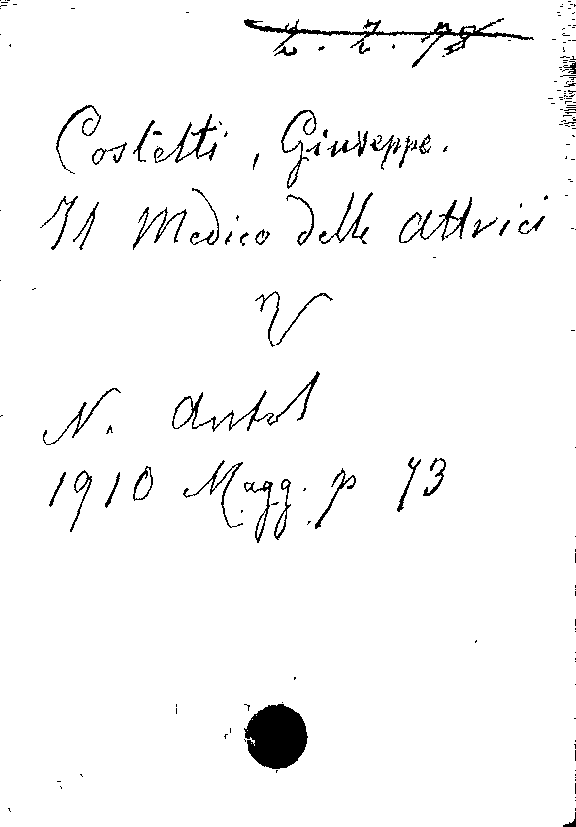 2. 7. 78
Costetti, Giuseppe.
Il Medico delle attrici
V
N. Antol
1910 Magg. p 73